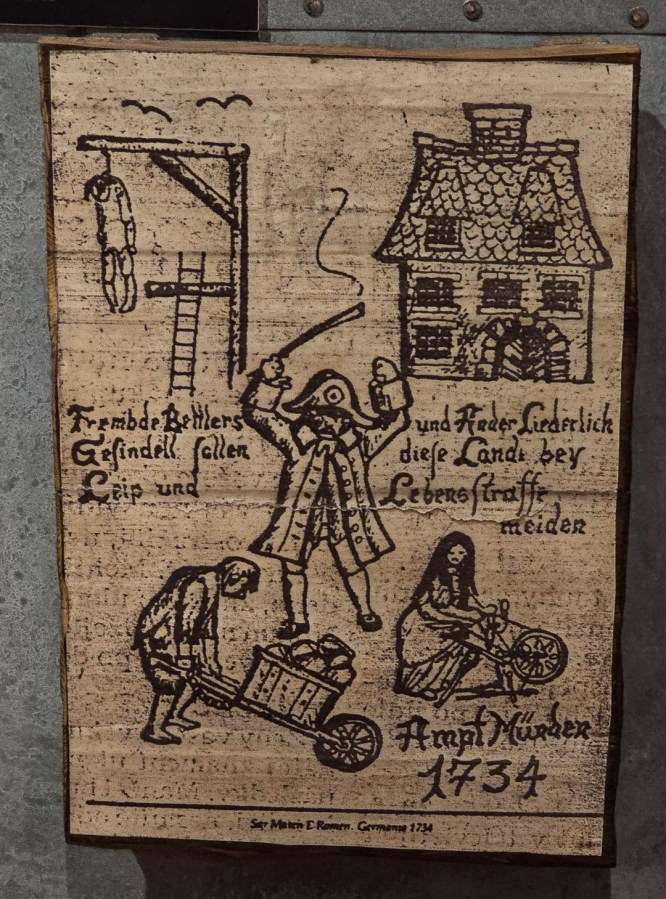 Frembde Bettlers und Ander Liederlich
Gesindell sollen diese Landt bey
Leip und Lebensstraffe
meiden
Ampt Münder
1734
E Romen. Germania 1734